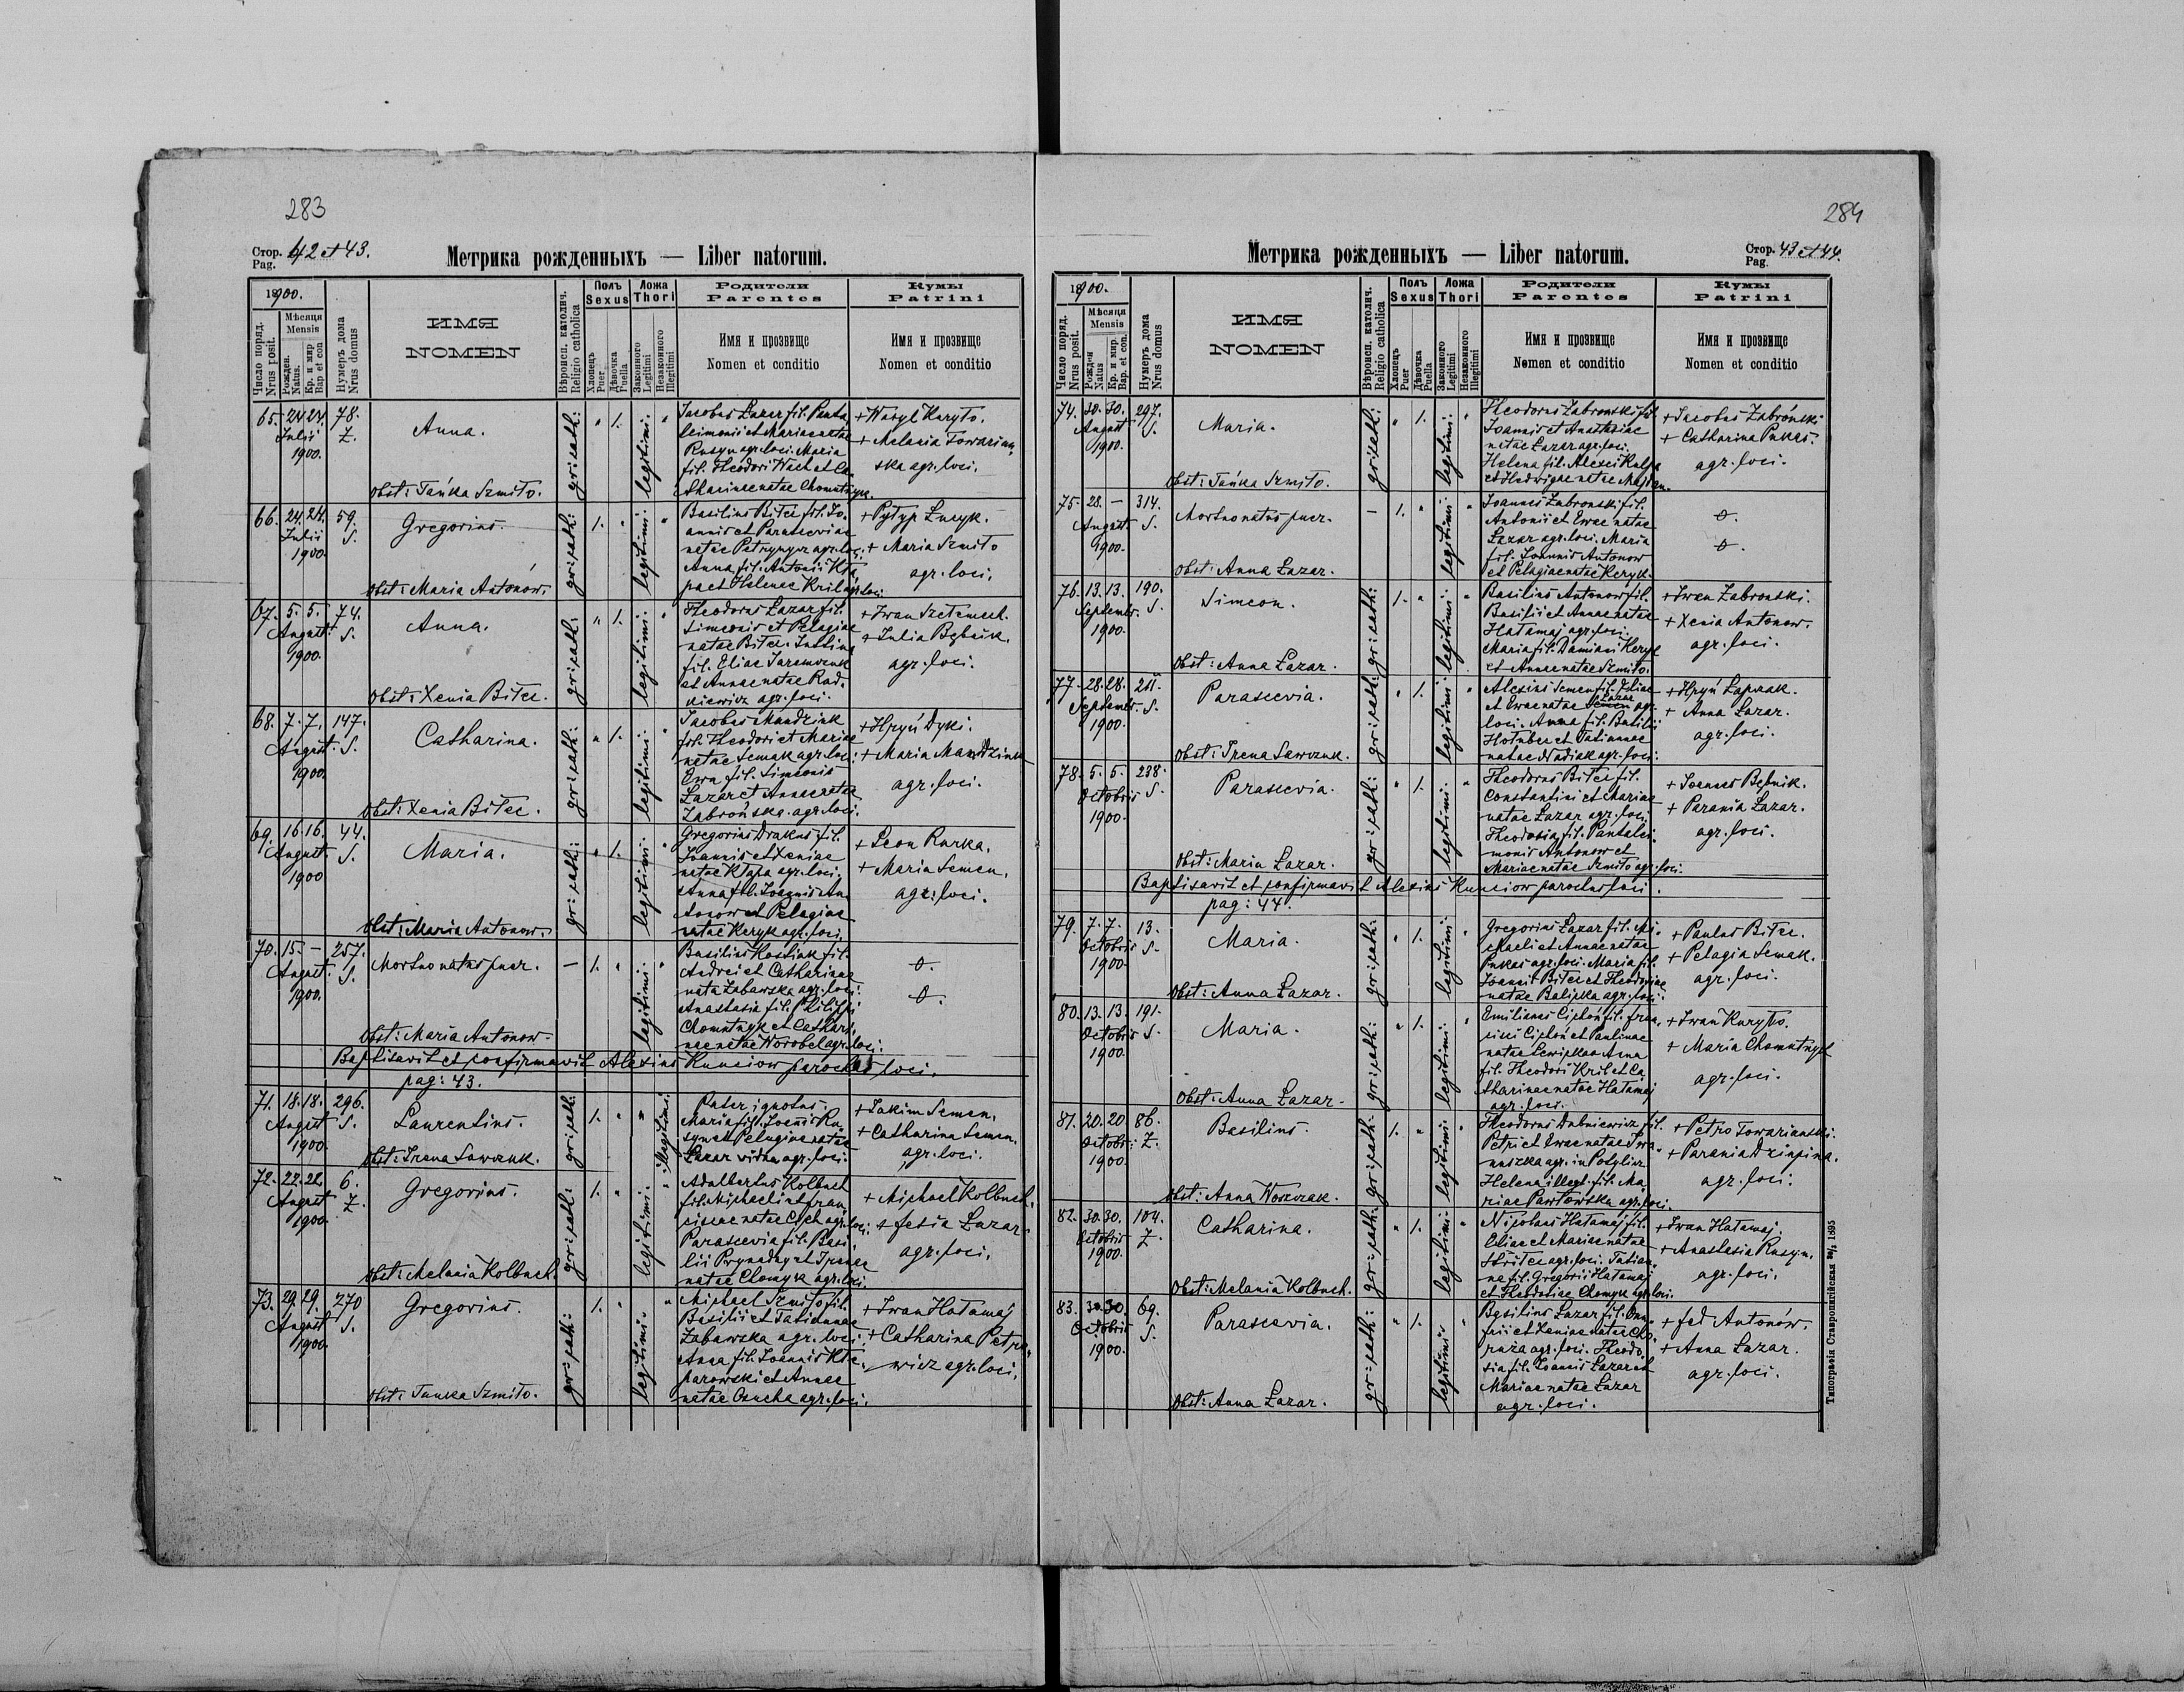 283
Стор. 42 et 43.
Pag.
Метрика рожденныхъ — Liber natorum.
1900.
Число поряд.
Nrus posit.
Мѣсяця
Mensis
Рожден.
Natus.
Кр. и мир
Bap. et con
Нумеръ дома
Nrus domus
ИМЯ
NOMEN
Вѣроисп. католич.
Religio catholica
Полъ
Sexus
Хлопець
Puer
Дѣвочка
Puella
Ложа
Thori
Законного
Legitimi
Незаконного
Illegitimi
Родители
Parentes
Имя и прозвище
Nomen et conditio
Кумы
Patrini
Имя и прозвище
Nomen et conditio
65. 24. 24. 78. Anna. gr: cath: " 1. legitimi: "
Julii Z.
1900.
Jacobus Lazar fil. Panta
leimonii et Mariae natae
Rusyn agr. loci. Maria
fil. Theodori Wach et Ca
tharinae natae Chomutnyk.
+ Wasyl Kuryto.
+ Melania Towarian,
ska agr. loci.
Obst: Tańka Szmiło.
66. 24. 24. 59. Gregorius. gr: cath: 1. " legitimi: "
Julii S.
1900.
Basilius Biłec fil. Jo,
annis et Parasceviae
natae agr. loci.
Anna fil. Antonii Kła
pa et Helenae Kril agr. loci.
+ Pyłyp Łucyk.
+ Maria Szmiło
agr. loci.
Obst: Maria Antonow.
67. 5. 5. 74. Anna. gr: cath: " 1. legitimi: "
August: S.
1900.
Theodorus Lazar fil.
Simeonis et Pelagiae
natae Biłec. Justina
fil. Eliae Jaremczuk
et Annae natae Rad,
kiewicz agr. loci.
+ Iwan
+ Julia Bębnik.
agr. loci.
Obst: Xenia Biłec.
68. 7. 7. 147. Catharina. gr: cath: " 1. legitimi: "
August. S.
1900.
Jacobus Mandziuk
fil. Theodori et Mariae
natae Semak agr. loci:
Ewa fil. Simeonis
Lazar et Annae natae
Zabrońska. agr. loci.
+ Hryń Dyki.
+ Maria Mandziuk
agr. loci.
Obst: Xenia Biłec.
69. 16. 16. 44. Maria. gr: cath: " 1. legitimi: "
August. S.
1900
Gregorius Drakus fil.
Joannis et Xeniae
natae Kłapa agr. loci.
Anna fil. Joannis An
tonow et Pelagiae
natae Keryk agr. loci.
+ Leon Rurka.
+ Maria Semen.
agr: loci.
Obst: Maria Antonow.
70. 15. — 257. Mortuo natus puer. — 1. " legitimi: "
August. S.
1900.
Basilius Kostiuk fil.
Andrei et Catharinae
nata Zabawska agr. loci:
Anastasia fil. Philippi
Chomutnyk et Cathari,
nae natae Worobel agr. loci.
Obst: Maria Antonow.
Baptisavit et confirmavit Alexius Kunciow parochus loci.
pag: 43.
71. 18. 18. 296. Laurentius. gr: cath: 1. " " illegitimi:
August S.
1900.
Pater ignotus.
Maria fil. Joannis Ru,
syn et Pelagiae natae
Lazar vidua agr. loci.
+ Jakim Semen.
+ Catharina Semen.
agr. loci.
Obst: Irena Sawczuk.
72. 22. 22. 6. Gregorius. gr: cath: 1. " legitimi: "
August Z.
1900.
Adalbertus Kolbuch
fil. Michaelis et Fran,
ciscae natae Cich agr. loci.
Parascevia fil. Basi,
lii Prynada et Irenae
natae Chomyk agr. loci.
+ Michael Kolbuch.
+ Fesia Lazar.
agr. loci.
Obst: Melania Kolbuch.
73. 29. 29. 270 Gregorius. gr: cath: 1. " legitimi: "
August S.
1900.
Michael Szmiło fil.
Basilii et Tatiannae
Zabawska agr. loci.
Anna fil. Joannis Kłe,
parowski et Annae
natae agr. loci.
+ Iwan Hałamaj
+ Catharina Petry,
wicz agr. loci.
Obst: Tańka Szmiło.
284
Метрика рожденныхъ — Liber natorum.
Стор. 43 et 44.
Pag.
1900.
Число поряд.
Nrus posit.
Мѣсяця
Mensis
Рожден
Natus
Кр. и мир.
Bap. et con.
Нумеръ дома
Nrus domus
ИМЯ
NOMEN
Вѣроисп. католич.
Religio catholica
Полъ
Sexus
Хлопець
Puer
Дѣвочка
Puella
Ложа
Thori
Законного
Legitimi
Незаконного
Illegitimi
Родители
Parentes
Имя и прозвище
Nomen et conditio
Кумы
Patrini
Имя и прозвище
Nomen et conditio
74. 30. 30. 297. Maria. gr: cath: " 1. legitimi: "
August S.
1900.
Theodorus Zabronski fil
Joannis et Anastasiae
natae Lazar agr. loci.
Helena fil. Alexii
et Hedwigae natae
+ Jacobus Zabroński
+ Catharina Pukas.
agr. loci.
Obst: Tańka Szmiło.
75. 28. — 314. Mortuo natus puer. — 1. " legitimi: "
August. S.
1900.
Joannes Zabronski fil.
Antonii et Ewae natae
Lazar agr. loci. Maria
fil. Joannis Antonow
et Pelagiae natae Keryk.
Obst: Anna Lazar.
76. 13. 13. 190. Simeon. gr: cath: 1. " legitimi: "
Septembr. S.
1900.
Basilius Antonow fil.
Basilii et Annae natae
Hałamaj agr. loci.
Maria fil. Damiani Keryk
et Annae natae Szmiło.
+ Iwan Zabronski.
+ Xenia Antonow.
agr. loci.
Obst: Anna Lazar.
77. 28. 28. 211. Parascevia. gr: cath: " 1. legitimi: "
Septembr. S.
1900.
Alexius Semen fil. Eliae
et Ewae natae Lazar agr.
loci. Anna fil. Basilii
Hołubec et Tatiannae
natae Nadiak agr. loci.
+ Hryń Łapczak.
+ Anna Lazar.
agr. loci.
Obst: Irena Sawczuk.
78. 5. 5. 238. Parascevia. gr: cath: " 1. legitimi: "
Octobris S.
1900.
Theodorus Biłec fil.
Constantini et Mariae
natae Lazar agr. loci.
Theodosia fil. Pantalei
monis Antonow et
Mariae natae Szmiło agr. loci.
+ Joannes Bębnik.
+ Parania Lazar.
agr. loci.
Obst: Maria Lazar.
Baptisavit et confirmavit Alexius Kunciow parochus loci.
pag: 44.
79. 7. 7. 13. Maria. gr: cath: " 1. legitimi: "
Octobris S.
1900.
Gregorius Lazar fil. Mi,
chaeli et Annae natae
Pukas agr. loci. Maria fil.
Joannis Biłec et Theodosiae
natae Balicka agr. loci.
+ Paulus Biłec.
+ Pelagia Semak.
agr. loci.
Obst: Anna Lazar.
80. 13. 13. 191. Maria. gr: cath: " 1. legitimi: "
Octobris S.
1900.
Emilianus Cichoń fil. Fran,
cisci Cichoń et Paulinae
natae Lewicka Anna
fil. Theodori Kril et Ca
tharinae natae Hałamaj
agr. loci.
+ Iwan Kuryło.
+ Maria Chomutnyk
agr. loci.
Obst: Anna Lazar.
81. 20. 20. 86. Basilius. gr: cath: 1. " legitimi: "
Octobr: Z.
1900.
Theodorus Dubniewicz fil.
Petri et Ewae natae Iwa,
nuszka agr. in
Helena illegt. fil. Ma,
riae Pawłowska agr. loci.
+ Petro Towarianski.
+ Parania
agr. loci.
Obst: Anna Worczak.
82. 30. 30. 104. Catharina. gr: cath: " 1. legitimi: "
Octobris Z.
1900.
Nicolaus Hałamaj fil.
Eliae et Mariae natae
agr. loci. Tatian,
na fil. Gregorii Hałamaj
et Theodosiae Chomyk agr. loci.
+ Iwan Hałamaj.
+ Anastasia Rusyn.
agr. loci.
Obst: Melania Kolbuch.
83. 30. 30. 69. Parascevia. gr: cath: " 1. legitimi: "
Octobris S.
1900.
Basilius Lazar fil. Onu,
frii et Xeniae natae
agr. loci. Theodo,
sia fil. Joannis Lazar et
Mariae natae Lazar
agr. loci.
+ Fed Antonów.
+ Anna Lazar.
agr. loci.
Obst: Anna Lazar.
Типографія Ставропигійская 1895